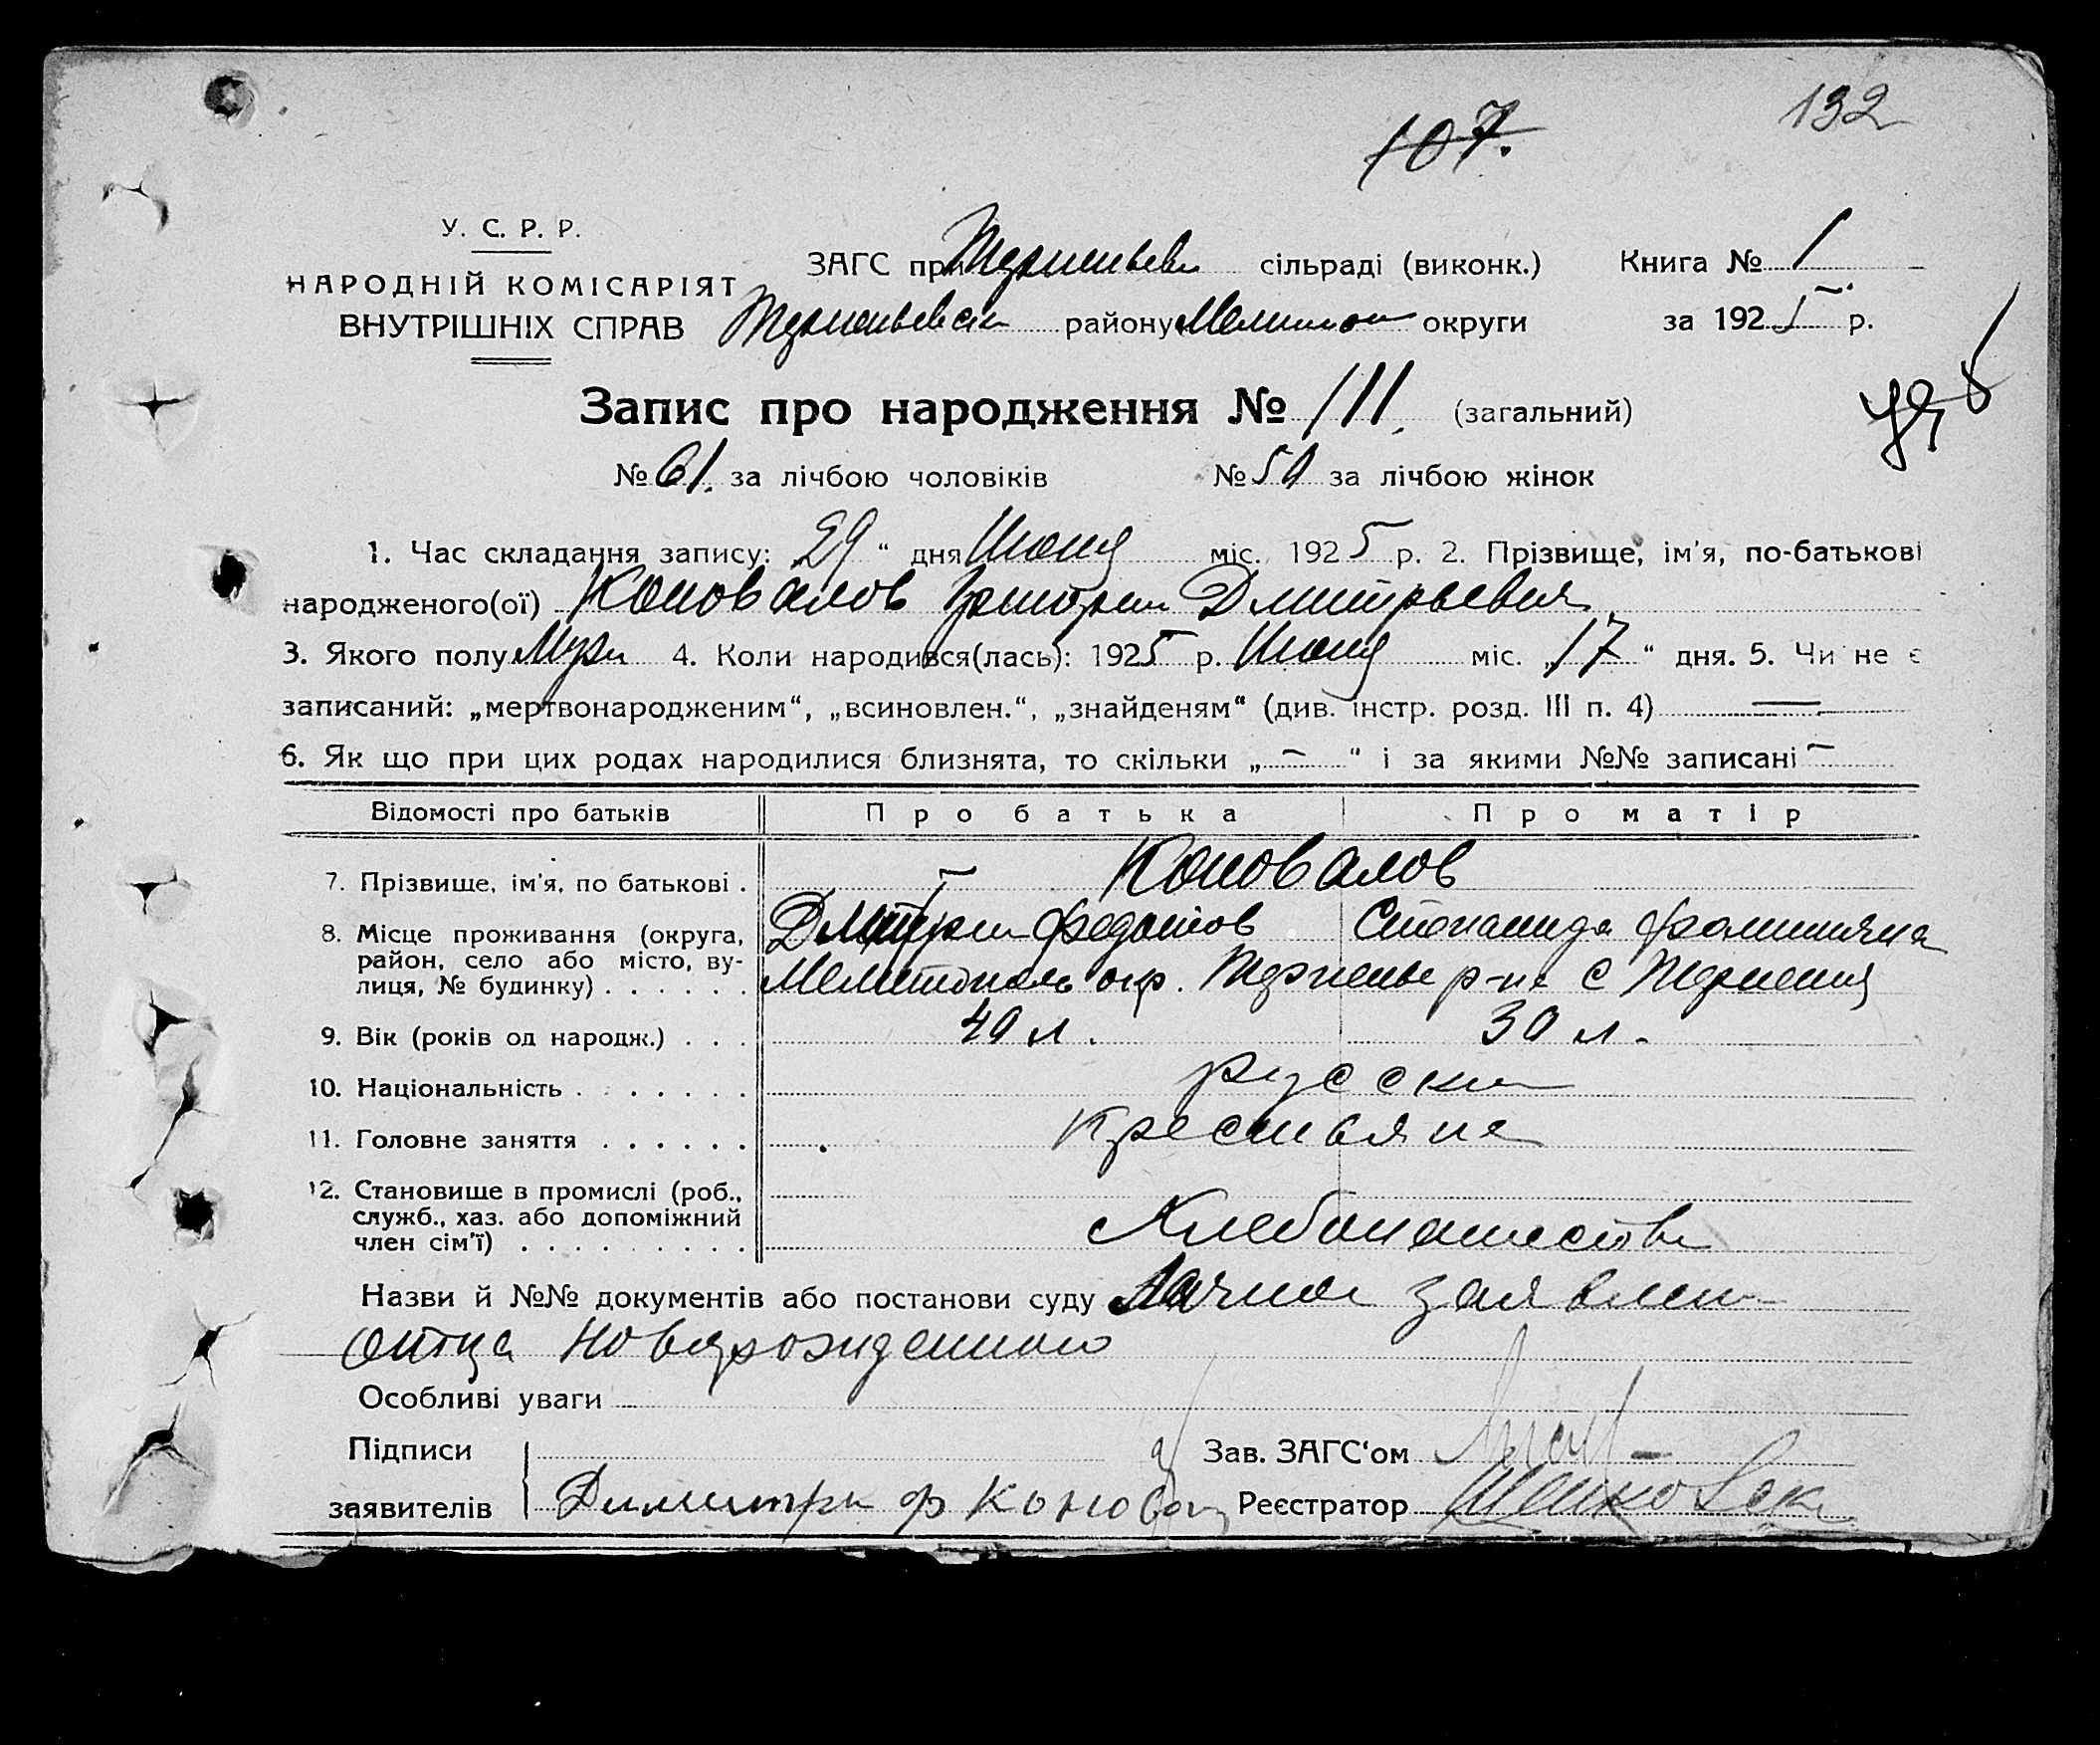 132
107.
У. С. Р. Р.
НАРОДНІЙ КОМІСАРІЯТ
ВНУТРІШНІХ СПРАВ
ЗАГС при сільраді (виконк.) Книга № 1
району округи за 1925 р.
Запис про народження № 111. (загальний)
№ 61. за лічбою чоловіків № 50 за лічбою жінок
1. Час складання запису: 29 “ дня Июня міс. 1925 р. 2. Прізвище, ім'я, по-батькові
народженого(ої) Коновалов Григорий Дмитрьевич
3. Якого полу Муж 4. Коли народився(лась): 1925 р. Июня міс. „17“ дня. 5. Чи не є
записаний: „мертвонародженим“, „всиновлен.“, „знайденям“ (див. інстр. розд. III п. 4) —
6. Як що при цих родах народилися близнята, то скільки „ – “ і за якими №№ записані –
Відомості про батьків Про батька Про матір
7. Прізвище, ім'я, по батькові . Коновалов
Дмитрий Федотов Степанида
8. Місце проживання (округа, район, село або місто, ву-
лиця, № будинку) . . . . . . Мелитополь окр. р-на с Терпения
9. Вік (років од народж.) . . . 40 л. 30 л.
10. Національність . . . . . . . русски
11. Головне заняття . . . . . . Крестьяне
12. Становище в промислі (роб.,
служб., хаз. або допоміжний
член сім'ї) . . . . . . . . . Хлебопашество
Назви й №№ документів або постанови суду Личное заявлен
отца новорожденного
Особливі уваги
Підписи Зав. ЗАГС‘ом
заявителів Димитри ф Коновал Реєстратор